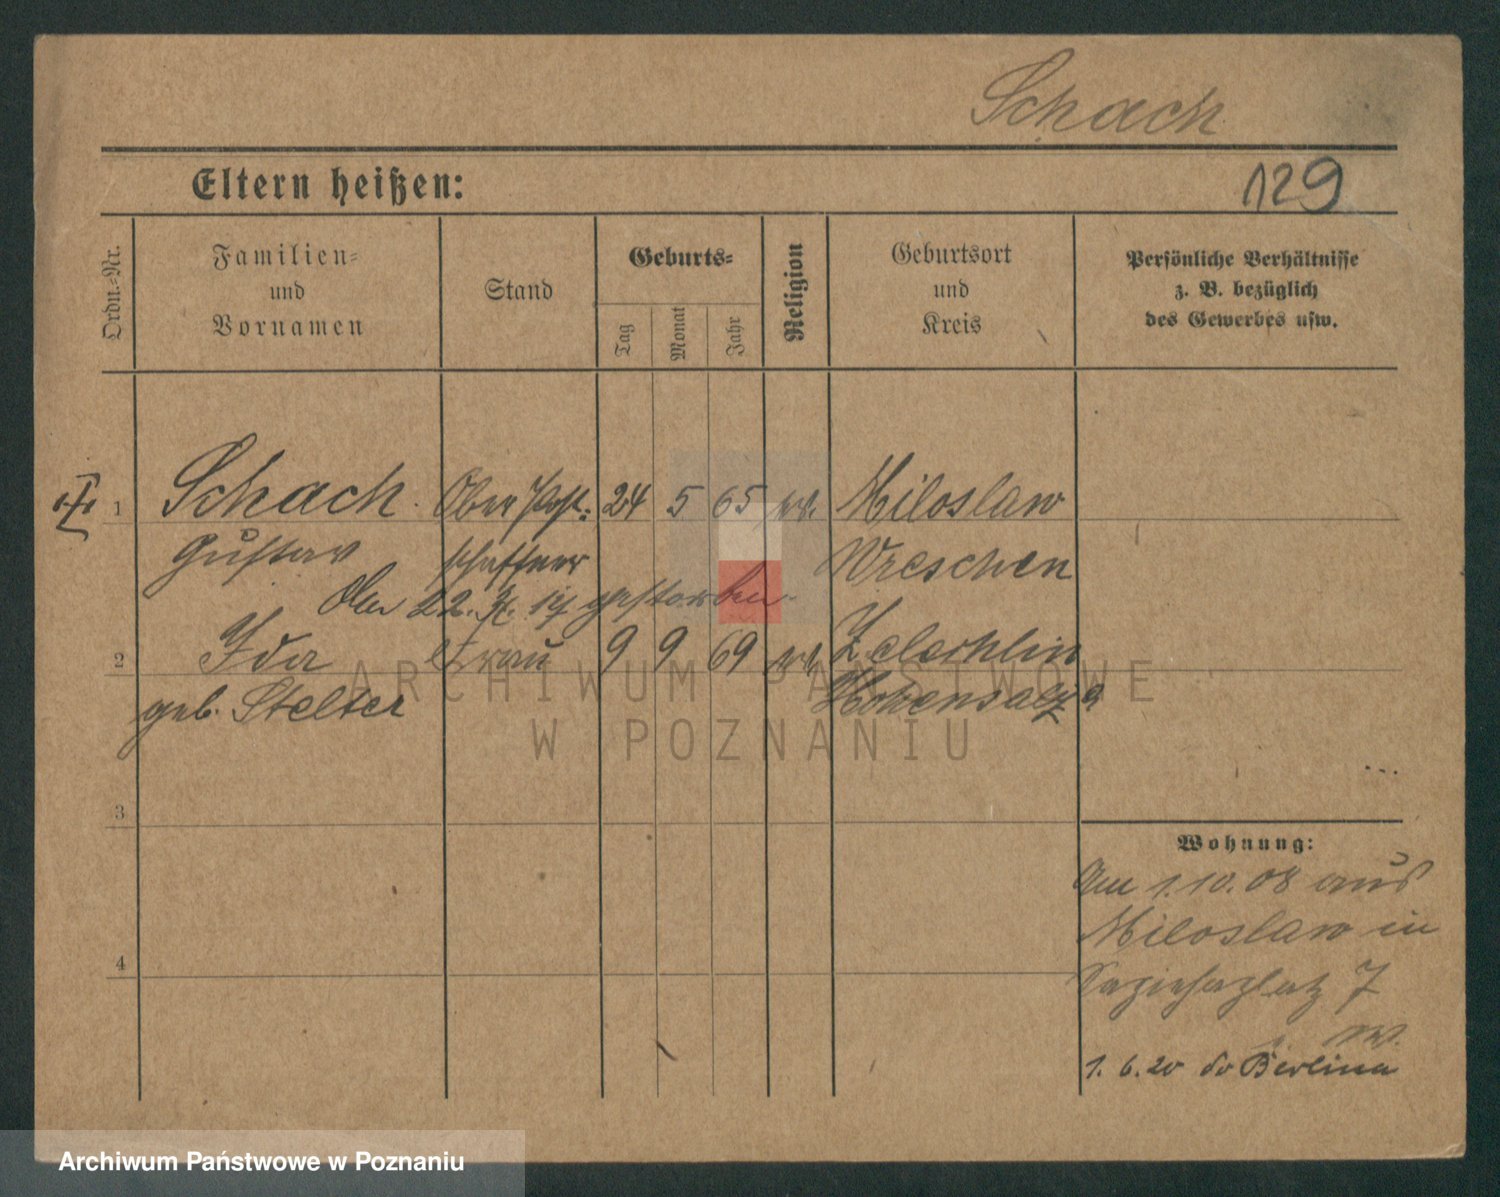 Schach
Eltern heißen:
129
Ordn.-Nr.
Familien-
und
Vornamen
Stand
Geburts-
Tag
Monat
Jahr
Religion
Geburtsort
und
Kreis
Persönliche Verhältnisse
z. B. bezüglich
des Gewerbes usw.
1 Schach Ober Post- 24 5 65 Miloslaw
Gustav schaffner Wreschen
22. 7. 14 gestorben
2 Ida Frau 9 9 69
geb. Stelter Hohensalza
3
4
Wohnung:
Am 1.10.08 aus
Miloslaw in
7
1. 6. 20 do Berlina
ARCHIWUM PAŃSTWOWE
W POZNANIU
Archiwum Państwowe w Poznaniu